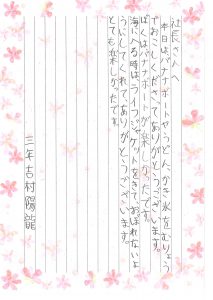 社長さんへ
本日はバナナボートやうどん、かき氷をむりょう
でおこしくださてありがとうございます。
ぼくはバナナボートが楽しかったです。
海に入る時はライフジャケットをきて、おぼれないよ
うにしてくれてありがとうございます。
とても楽しかったです。
三年吉村陽龍